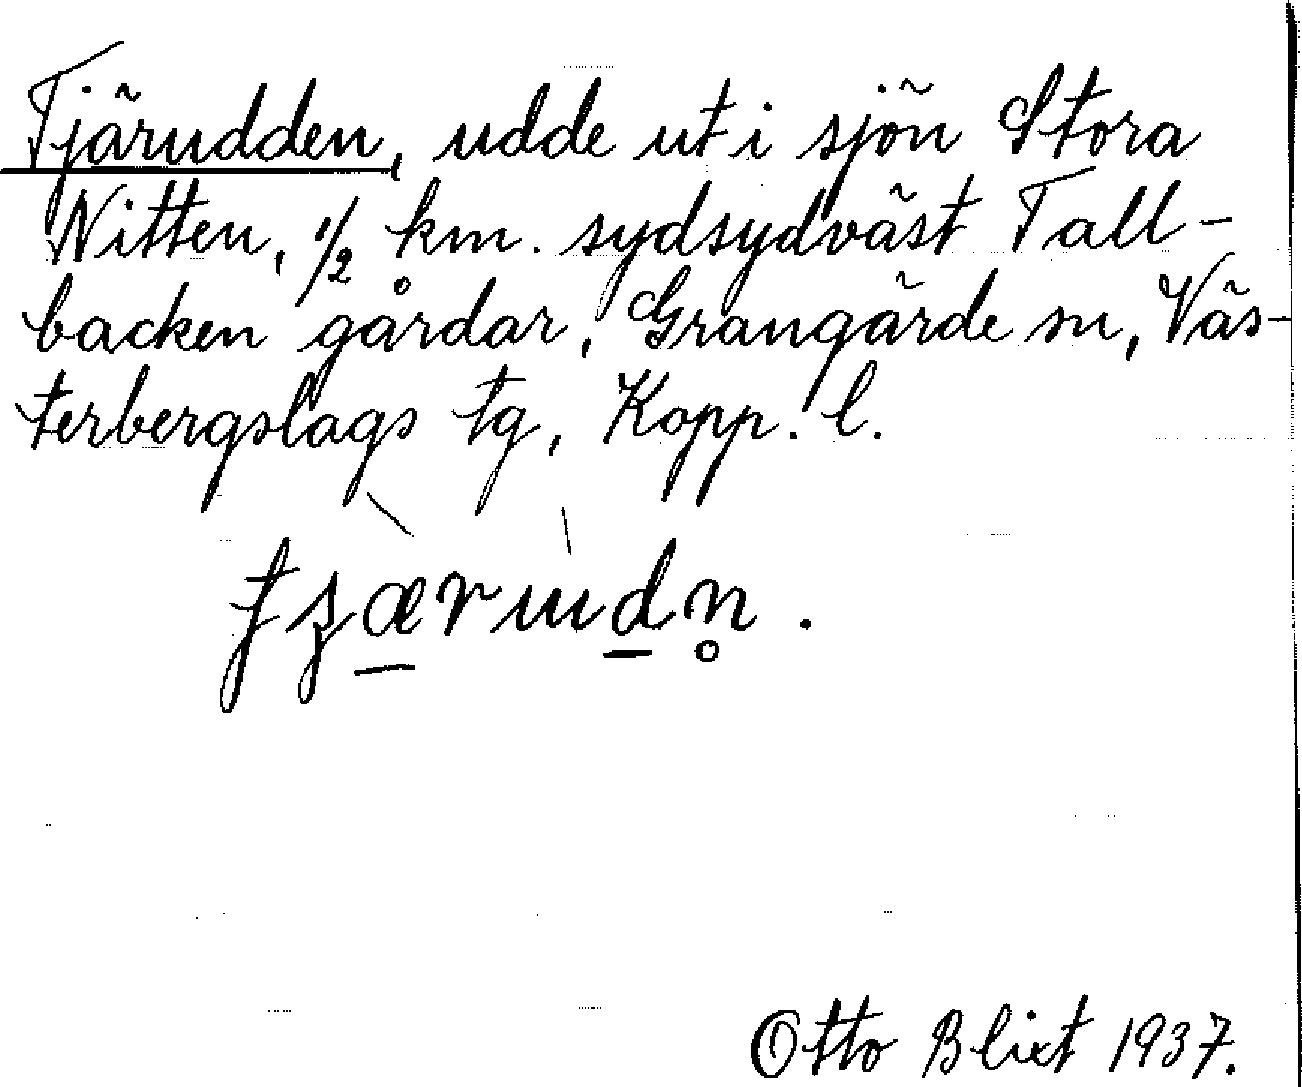 Tjärudden, udde ut i sjön Stora
Nitten, 1/2 km. sydsydväst Tall-
backen gårdar, Grangärde sn, Väs-
terbergslags tg, Kopp. l.
Otto Blixt 1937.